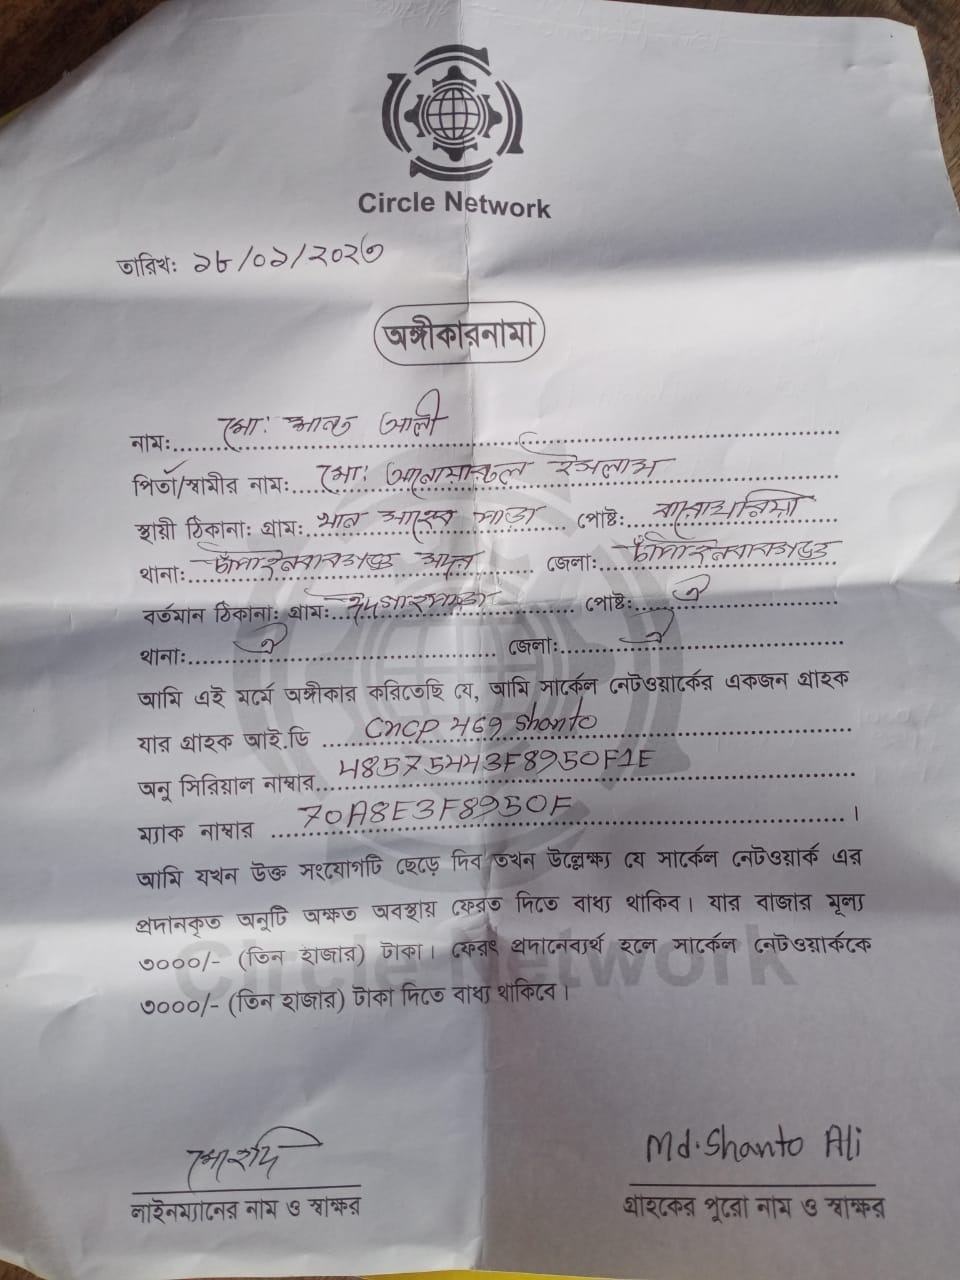 Circle Network
তারিখ: ১৮/০১/২০২৩
অঙ্গীকারনামা
নাম: মো: শান্ত আলী
পিতা/স্বামীর নাম: মো: আনোয়ারুল ইসলাম
স্থায়ী ঠিকানা: গ্রাম: পোষ্ট: বারোঘরিয়া
থানা: চাঁপাইনবাবগঞ্জ সদর জেলা: চাঁপাইনবাবগঞ্জ
বর্তমান ঠিকানা: গ্রাম: পোষ্ট: ঐ
থানা: ঐ জেলা: ঐ
আমি এই মর্মে অঙ্গীকার করিতেছি যে, আমি সার্কেল নেটওয়ার্কের একজন গ্রাহক
যার গ্রাহক আই.ডি CNCP 469 Shanto
অনু সিরিয়াল নাম্বার 48575443F8950F1E
ম্যাক নাম্বার 70A8E3F8950F ।
আমি যখন উক্ত সংযোগটি ছেড়ে দিব তখন উল্লেক্ষ্য যে সার্কেল নেটওয়ার্ক এর
প্রদানকৃত অনুটি অক্ষত অবস্থায় ফেরত দিতে বাধ্য থাকিব। যার বাজার মূল্য
৩০০০/- (তিন হাজার) টাকা। ফেরৎ প্রদানেব্যর্থ হলে সার্কেল নেটওয়ার্ককে
৩০০০/- (তিন হাজার) টাকা দিতে বাধ্য থাকিবে।
Circle Network
Md. Shanto Ali
লাইনম্যানের নাম ও স্বাক্ষর গ্রাহকের পুরো নাম ও স্বাক্ষর